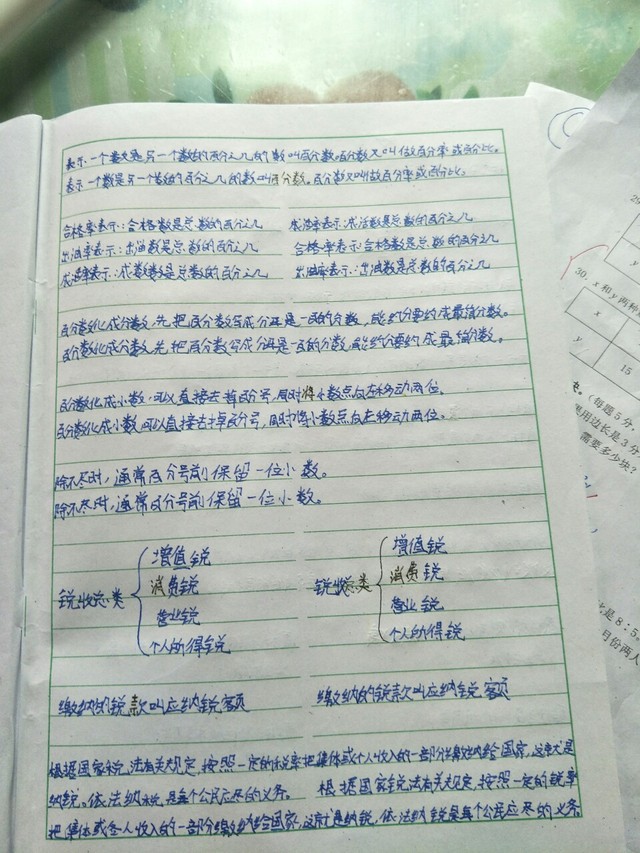 表示一个数是另一个数的百分之几的数叫百分数,百分数又叫做百分率或百分比。
表示一个数是另一个数的百分之几的数叫百分数。百分数又叫做百分率或百分比。
合格率表示:合格数是总数的百分之几 成活率表示:成活数是总数的百分之几
出油率表示:出油数是总数的百分之几 合格率表示:合格数是总数的百分之几
成活率表示:成活数是总数的百分之几 出油率表示:出油数是总数的百分之几
百分数化成分数,先把百分数写成分母是一百的分数,能约分要约成最简分数。
百分数化成分数,先把百分数写成分母是一百的分数,能约分要约成最简分数。
百分数化成小数,可以直接去掉百分号,同时将小数点向左移动两位。
百分数化成小数,可以直接去掉百分号,同时将小数点向左移动两位。
除不尽时,通常百分号前保留一位小数。
除不尽时,通常百分号前保留一位小数。
增值锐 增值锐
消费锐 消费锐
锐收总类 锐收总类
营业锐 营业锐
个人所得锐 个人所得锐
缴纳的锐款叫应纳锐额 缴纳的锐款叫应纳锐额
根据国家税法有关规定,按照一定的税率把集体或个人收入的一部分缴纳给国家,这就是
纳锐。依法纳税是每个公民应尽的义务。 根据国家锐法有关规定,按照一定的锐率
把集体或个人收入的一部分缴纳给国家,这就是纳锐,依法纳锐是每个公民应尽的义务。
30. x 和 y 两种
x
y
15
(每题5分,
用边长是3分
需要多少块?
是 8:5,
月份两人